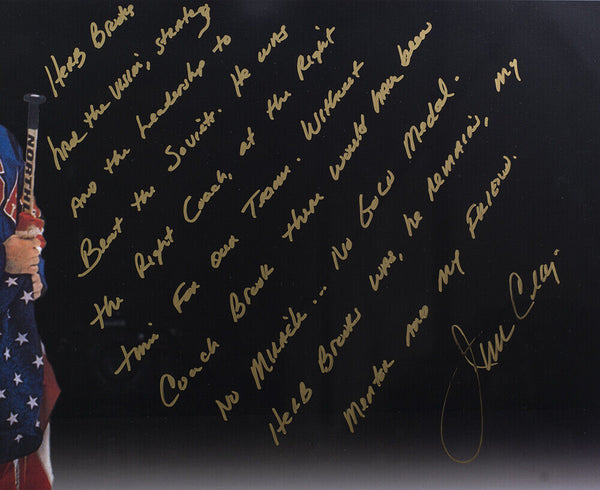 Herb Brooks
had the vision, strategy
And the Leadership to
Beat the Soviets. He was
the Right Coach, at the Right
time For our Team. Without
Coach Brooks there would have been
No Miracle... No Gold Medal.
Herb Brooks was, he remains, my
Mentor and my Friend.
Jim Craig
NORTH